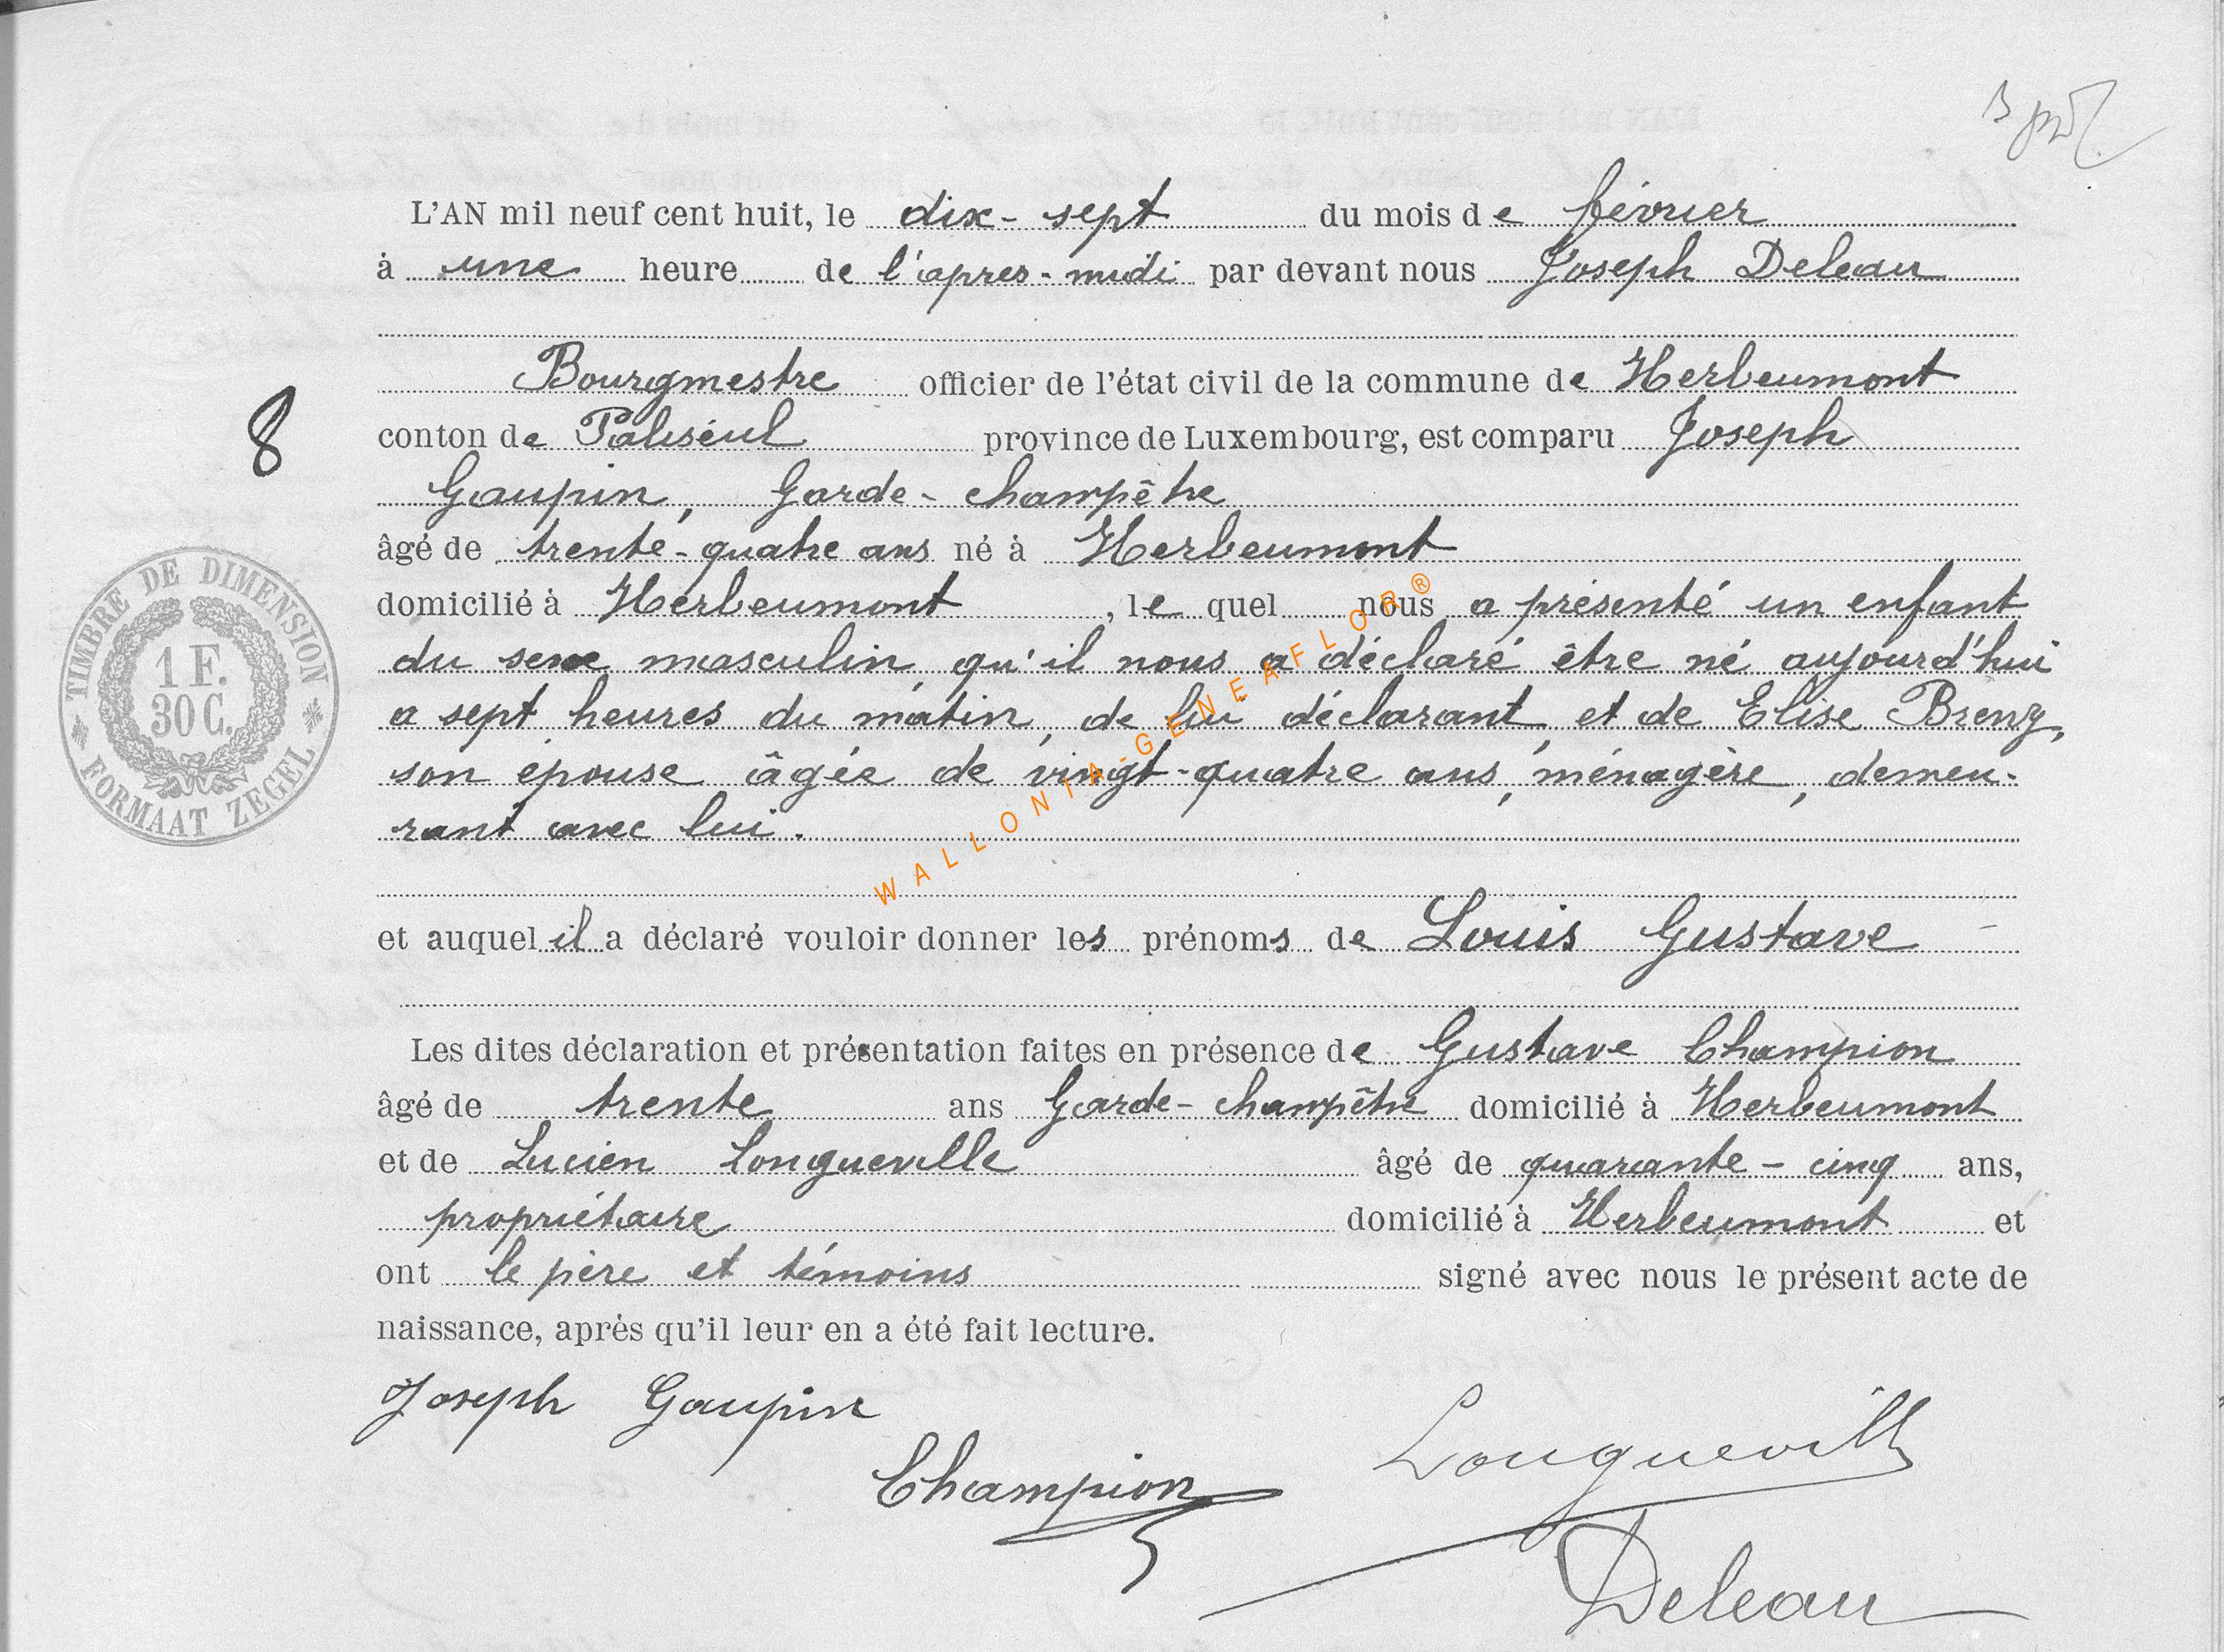 L'AN mil neuf cent huit, le dix-sept du mois de février
à une heure de l'apres-midi par devant nous Joseph Deleau
Bourgmestre officier de l'état civil de la commune de Herbeumont
8
conton de Paliseul province de Luxembourg, est comparu Joseph
Gaupin, Garde-champêtre
âgé de trente-quatre ans né à Herbeumont
domicilié à Herbeumont, le quel nous a présenté un enfant
du sexe masculin, qu'il nous a déclaré être né aujourd'hui
a sept heures du matin, de lui déclarant, et de Elise Brenz,
son épouse âgée de vingt-quatre ans, ménagère, demeu-
rant avec lui.
et auquel il a déclaré vouloir donner les prénoms de Louis Gustave
Les dites déclaration et présentation faites en présence de Gustave Champion
âgé de trente ans Garde-champêtre domicilié à Herbeumont
et de Lucien Longueville âgé de quarante-cinq ans,
propriétaire domicilié à Herbeumont et
ont le père et témoins signé avec nous le présent acte de
naissance, après qu'il leur en a été fait lecture.
Joseph Gaupin
Longueville
Champion
Deleau
TIMBRE DE DIMENSION
1 F.
30 C.
FORMAAT ZEGEL
WALLONIA-GENEAFLOR®